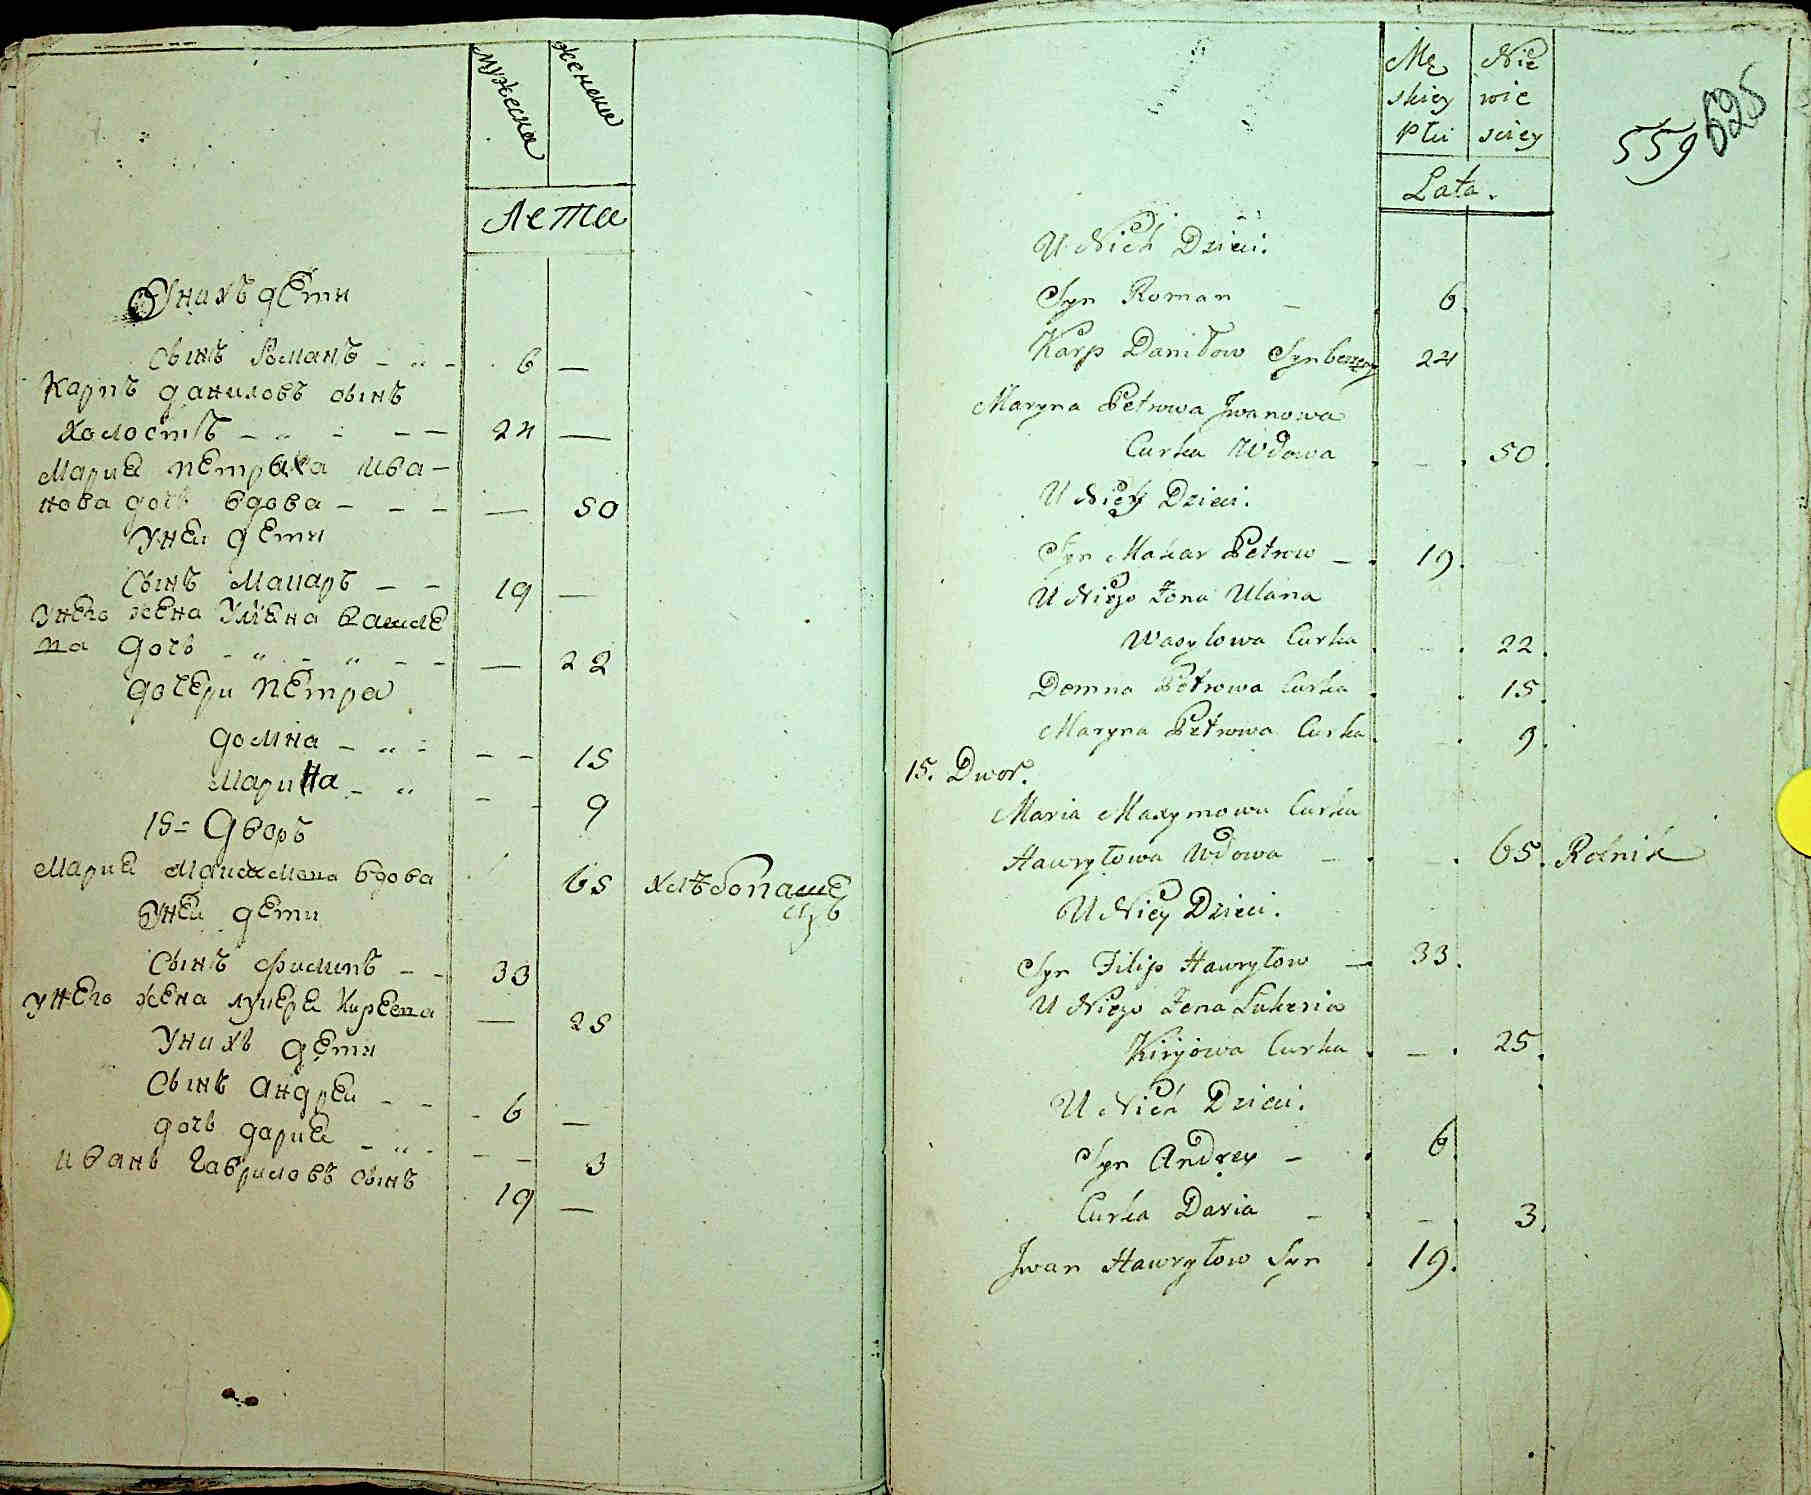 мужеска
женска
Лета
У нихъ дети
Сынъ Романъ 6 —
Карпъ даниловъ сынъ
холостъ 24 —
Мариа петрова ива-
нова дочь вдова — 50
У неи дети
Сынъ Макаръ 19 —
У него жена Улїена Василе
ва дочь — 22
дочери петра
домна — — 15
Марина — — 9
15= Дворъ
Мариа Максимова вдова 65 хлѣбопаше
цъ
У неи дети
Сынъ филипъ 33
У него жена лукериа Киреева — 25
У нихъ дети
Сынъ андреи 6 —
дочь дариа — — 3
иванъ гавриловъ сынъ 19 —
Mę Nie
skiey wie
Płci sciey
559 525
Lata.
U Nich Dzieci.
Syn Roman — 6.
Karp Daniłow Syn bezżeny 24
Maryna Petrowa Jwanowa
Curka Wdowa — 50.
U Niey Dzieci.
Syn Makar Petrow — 19.
U Niego Żona Ulana
Wasylowa Curka 22.
Domna Petrowa Curka 15.
Maryna Petrowa Curka 9.
15. Dwor.
Maria Maxymowa Curka
Hawryłowa Wdowa — — 65. Rolnik
U Niey Dzieci.
Syn Filip Hawryłow — 33.
U Niego Żena Lukeria
Kiryiowa Curka — 25.
U Nich Dzieci.
Syn Andrey — 6.
Curka Daria — — 3.
Jwan Hawryłow Syn 19.